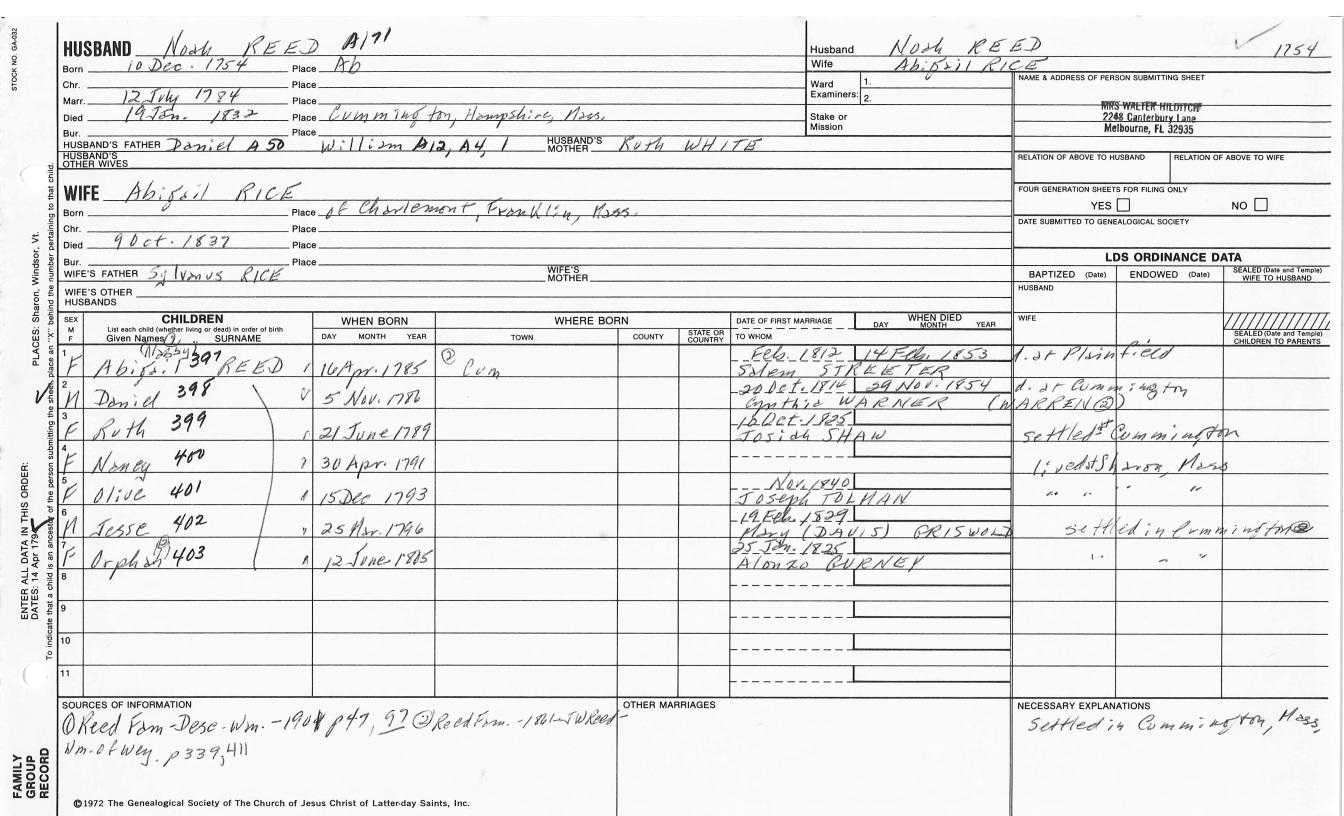 STOCK NO. GA-032
HUSBAND Noah REED A171
Born 10 Dec. 1754 Place Ab
Chr. Place
Marr. 12 July 1784 Place
Died 19 Jan. 1832 Place Cummington, Hampshire, Mass.
Bur. Place
HUSBAND'S FATHER Daniel A50 William A12, A4, 1 HUSBAND'S MOTHER Ruth WHITE
HUSBAND'S OTHER WIVES
Husband Noah REED 1754
Wife Abigail RICE
Ward Examiners: 1.
2.
Stake or Mission
NAME & ADDRESS OF PERSON SUBMITTING SHEET
MRS WALTER HILDITCH
2248 Canterbury Lane
Melbourne, FL 32935
RELATION OF ABOVE TO HUSBAND RELATION OF ABOVE TO WIFE
FOUR GENERATION SHEETS FOR FILING ONLY
YES NO
DATE SUBMITTED TO GENEALOGICAL SOCIETY
WIFE Abigail RICE
Born Place of Charlemont, Franklin, Mass.
Chr. Place
Died 9 Oct. 1837 Place
Bur. Place
WIFE'S FATHER Sylvanus RICE WIFE'S MOTHER
WIFE'S OTHER HUSBANDS
LDS ORDINANCE DATA
BAPTIZED (Date) ENDOWED (Date) SEALED (Date and Temple) WIFE TO HUSBAND
HUSBAND
WIFE
SEALED (Date and Temple) CHILDREN TO PARENTS
SEX M F CHILDREN WHEN BORN WHERE BORN DATE OF FIRST MARRIAGE WHEN DIED
List each child (whether living or dead) in order of birth
Given Names SURNAME DAY MONTH YEAR TOWN COUNTY STATE OR COUNTRY TO WHOM DAY MONTH YEAR
1 F Abigail 397 REED 16 Apr. 1785 ② Cum Feb. 1812 14 Feb. 1853 d. at Plainfield
Salem STREETER
2 M Daniel 398 5 Nov. 1786 20 Oct. 1814 29 Nov. 1854 d. at Cummington
Cynthia WARNER (WARREN ②)
3 F Ruth 399 21 June 1789 16 Oct. 1825 settled at Cummington
Josiah SHAW
4 F Nancy 400 30 Apr. 1791 lived at Sharon, Mass
5 F Olive 401 15 Dec 1793 Nov. 1840 " " " "
Joseph TOLMAN
6 M Jesse 402 25 Mar. 1796 19 Feb. 1829 settled in Cummington
Mary (DAVIS) GRISWOLD
7 F Orpha 403 12 June 1805 25 Jan. 1825 " " "
Alonzo GURNEY
8
9
10
11
SOURCES OF INFORMATION
① Reed Fam-Desc. Wm. -1901 p47, 97 ② Reed Fam. -1861-JW Reed-
Wm. of Wey. p339, 411
OTHER MARRIAGES
NECESSARY EXPLANATIONS
Settled in Cummington, Mass.
©1972 The Genealogical Society of The Church of Jesus Christ of Latter-day Saints, Inc.
FAMILY GROUP RECORD
ENTER ALL DATA IN THIS ORDER:
DATES: 14 Apr 1794
PLACES: Sharon, Windsor, Vt.
To indicate that a child is an ancestor of the person submitting the sheet, place an "X" behind the number pertaining to that child.